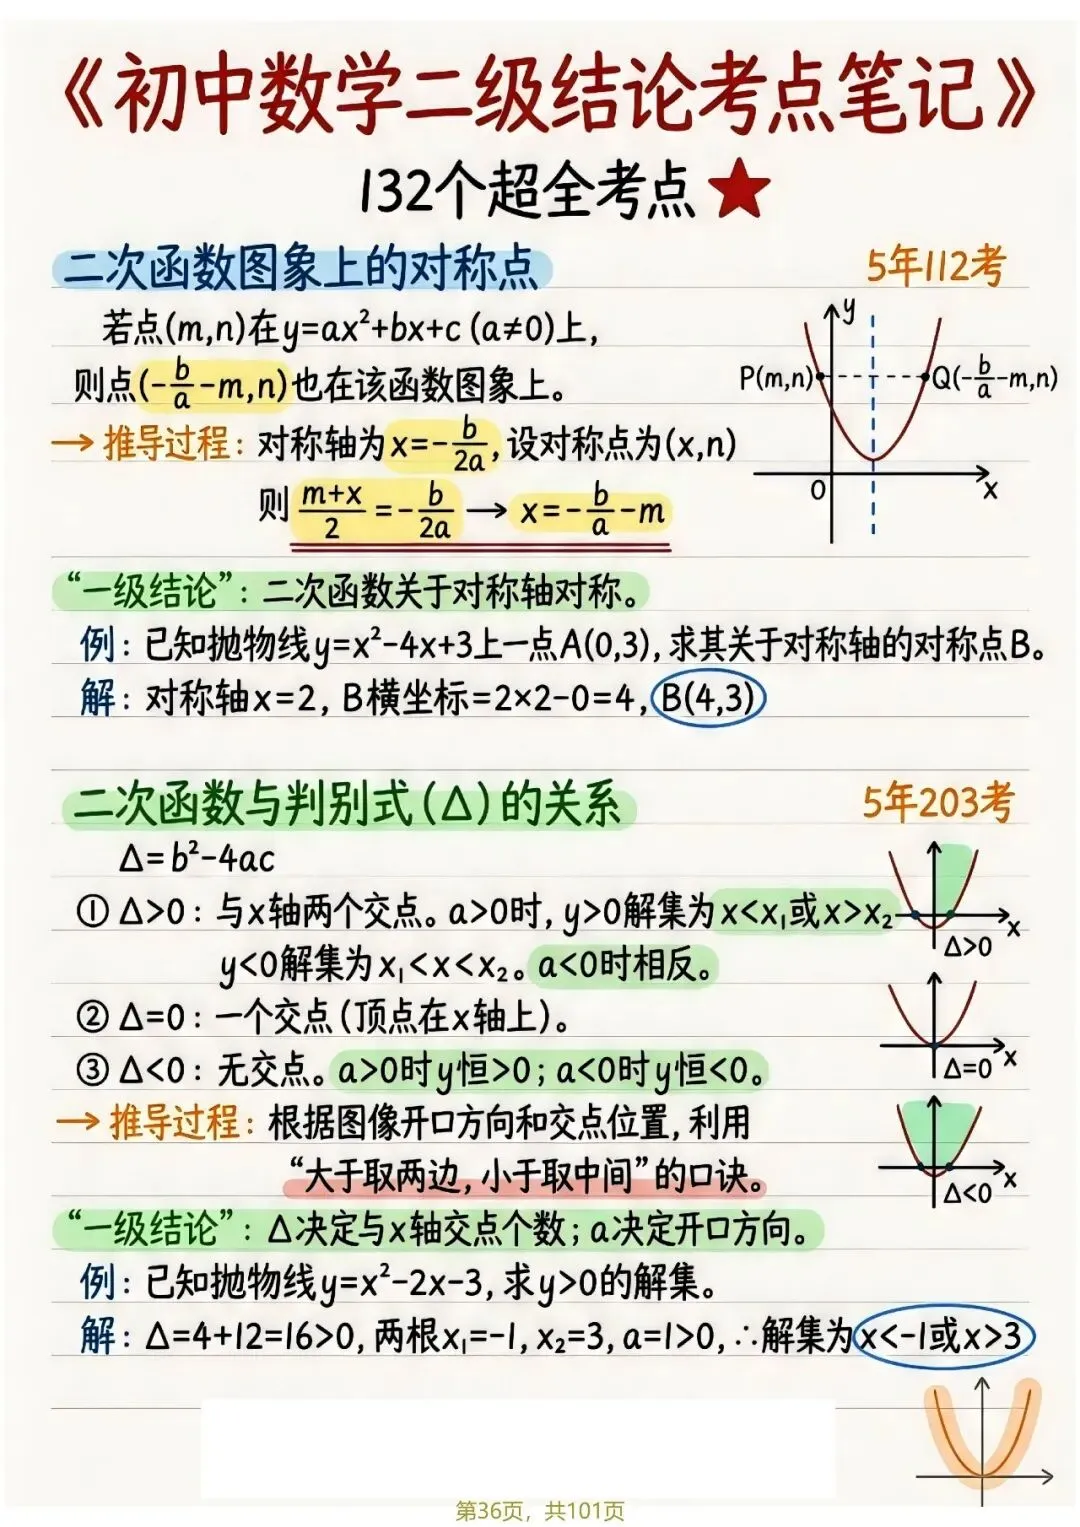 《初中数学二级结论考点笔记》
132个超全考点
二次函数图象上的对称点
5年112考
若点(m,n)在y=ax²+bx+c (a≠0)上,
则点(-b/a-m,n)也在该函数图象上。
→ 推导过程: 对称轴为x=-b/2a, 设对称点为(x,n)
则 m+x/2 = -b/2a → x=-b/a-m
y
P(m,n)
Q(-b/a-m,n)
O
x
“一级结论”: 二次函数关于对称轴对称。
例: 已知抛物线y=x²-4x+3上一点A(0,3), 求其关于对称轴的对称点B。
解: 对称轴x=2, B横坐标=2×2-0=4, B(4,3)
二次函数与判别式(Δ)的关系
5年203考
Δ=b²-4ac
① Δ>0: 与x轴两个交点。a>0时, y>0解集为x<x₁或x>x₂
y<0解集为x₁<x<x₂。a<0时相反。
x
Δ>0
② Δ=0: 一个交点(顶点在x轴上)。
x
Δ=0
③ Δ<0: 无交点。a>0时y恒>0; a<0时y恒<0。
→ 推导过程: 根据图像开口方向和交点位置, 利用
“大于取两边, 小于取中间”的口诀。
x
Δ<0
“一级结论”: Δ决定与x轴交点个数; a决定开口方向。
例: 已知抛物线y=x²-2x-3, 求y>0的解集。
解: Δ=4+12=16>0, 两根x₁=-1, x₂=3, a=1>0, ∴解集为x<-1或x>3
第36页, 共101页